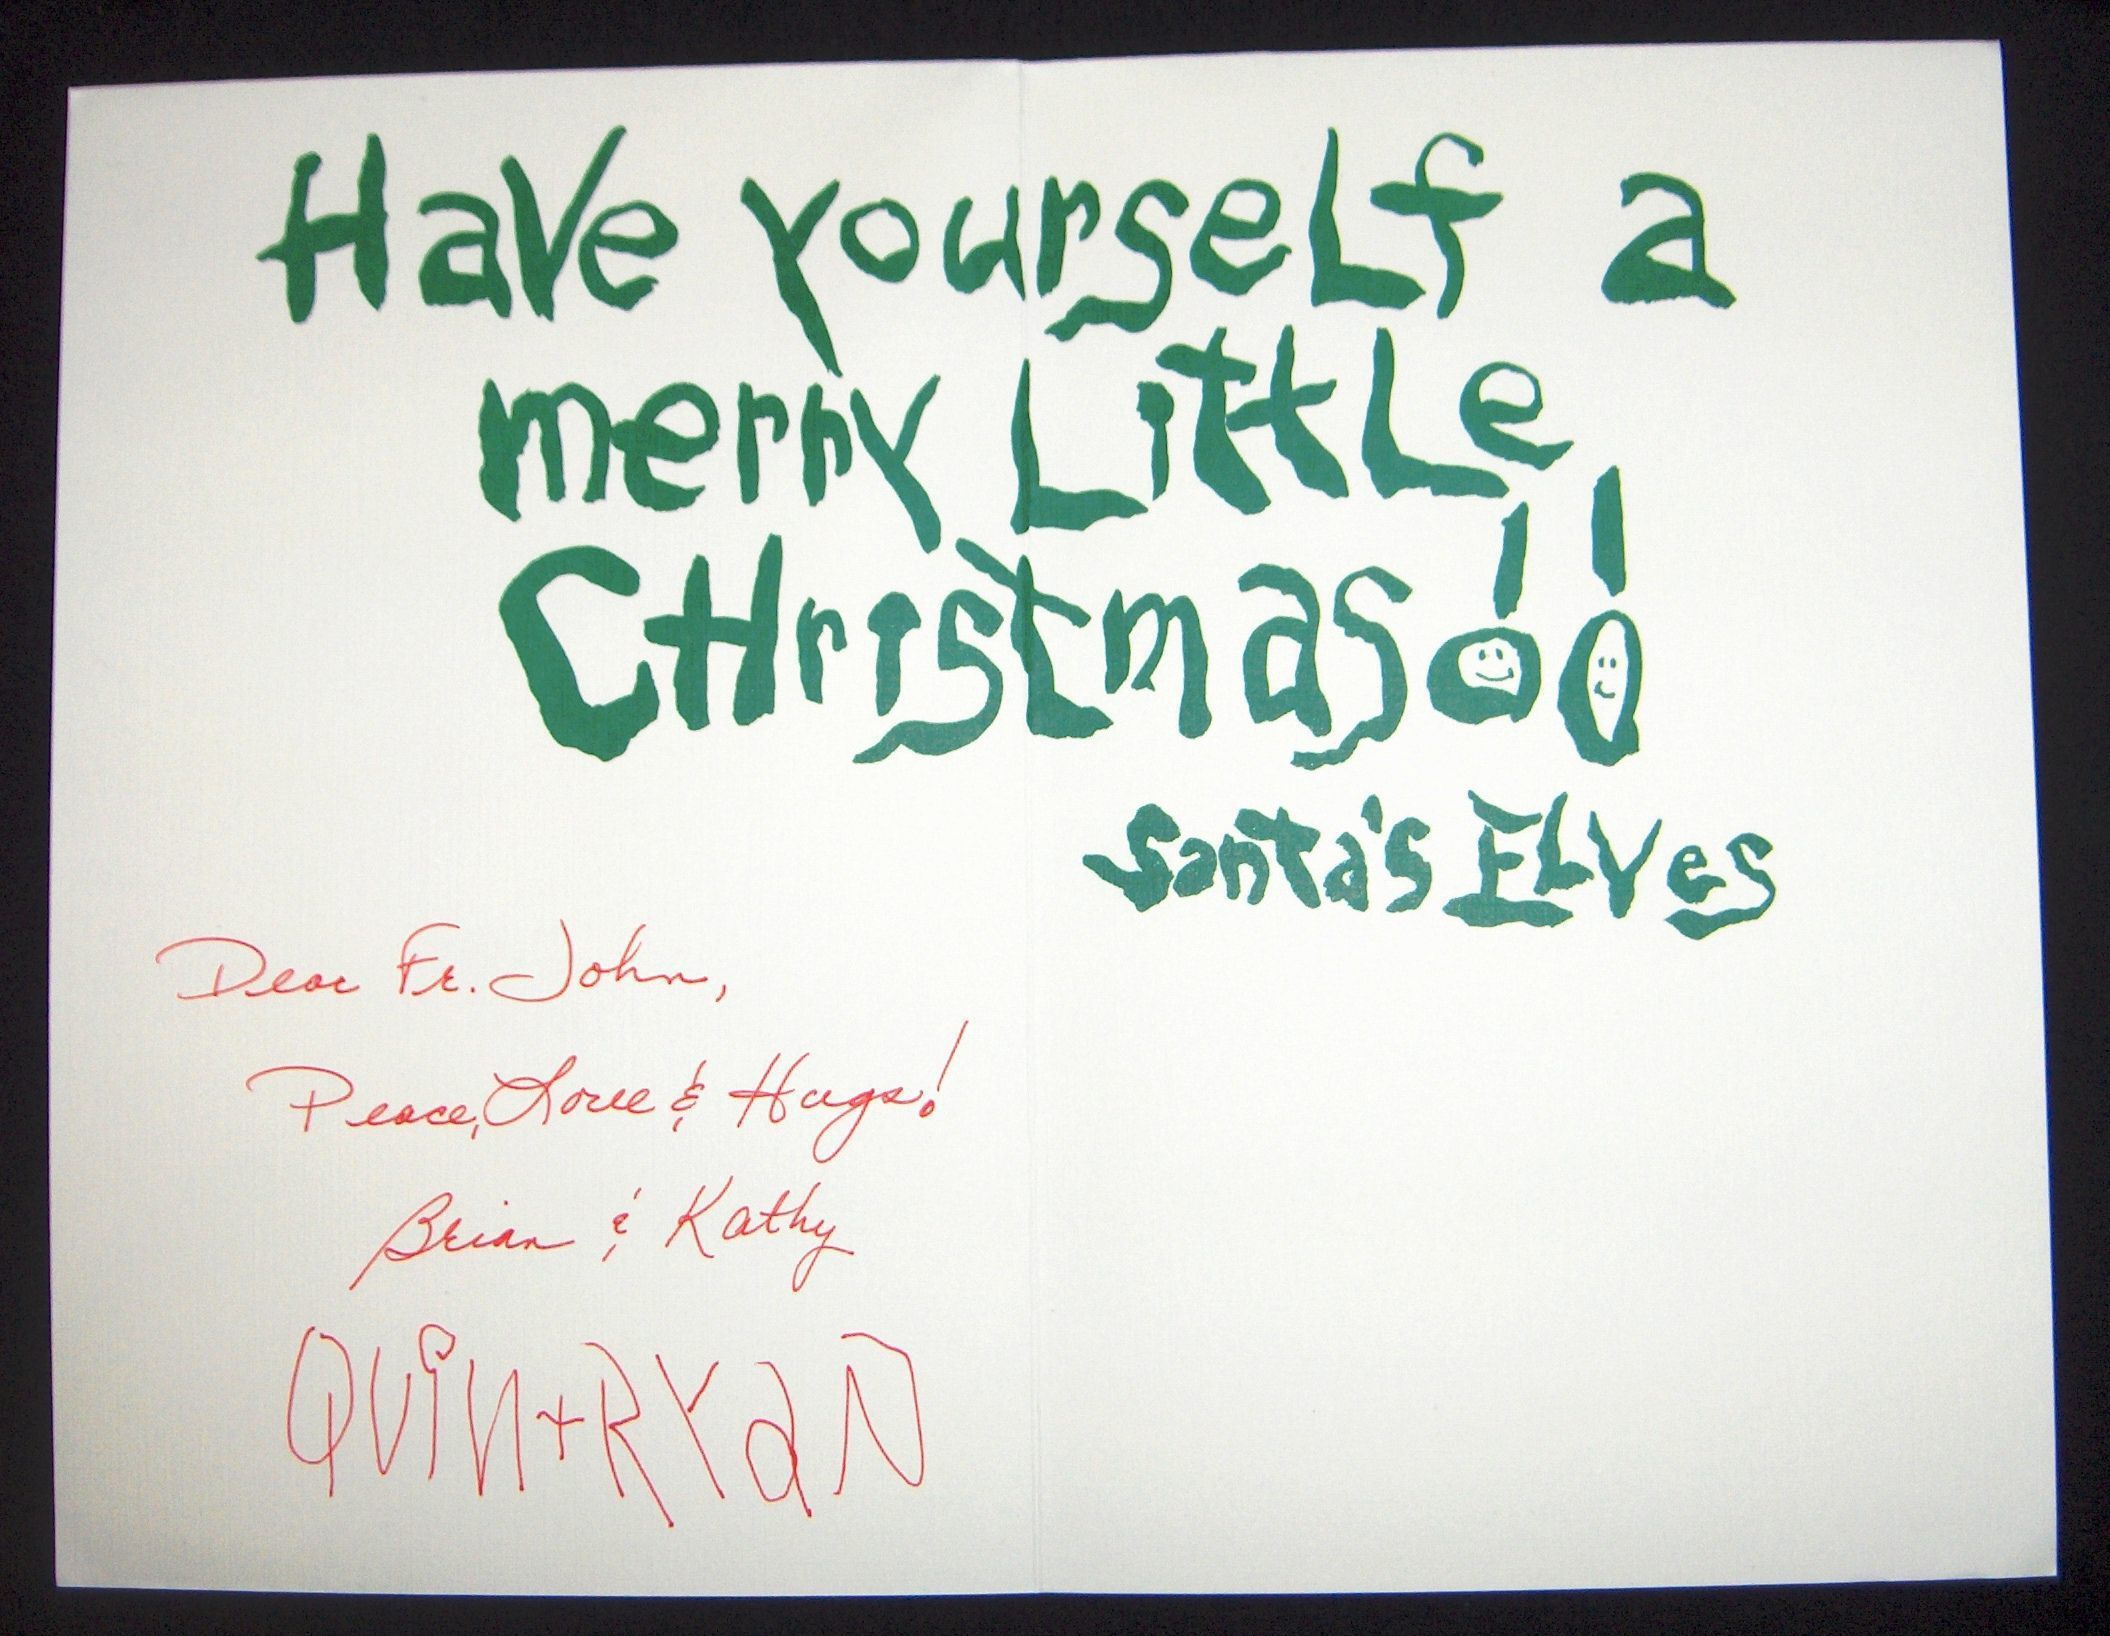 Have yourself a
merry Little
CHristmas!!
Santa's ELVes
Dear Fr. John,
Peace, Love & Hugs!
Brian & Kathy
QUiN+RYaN